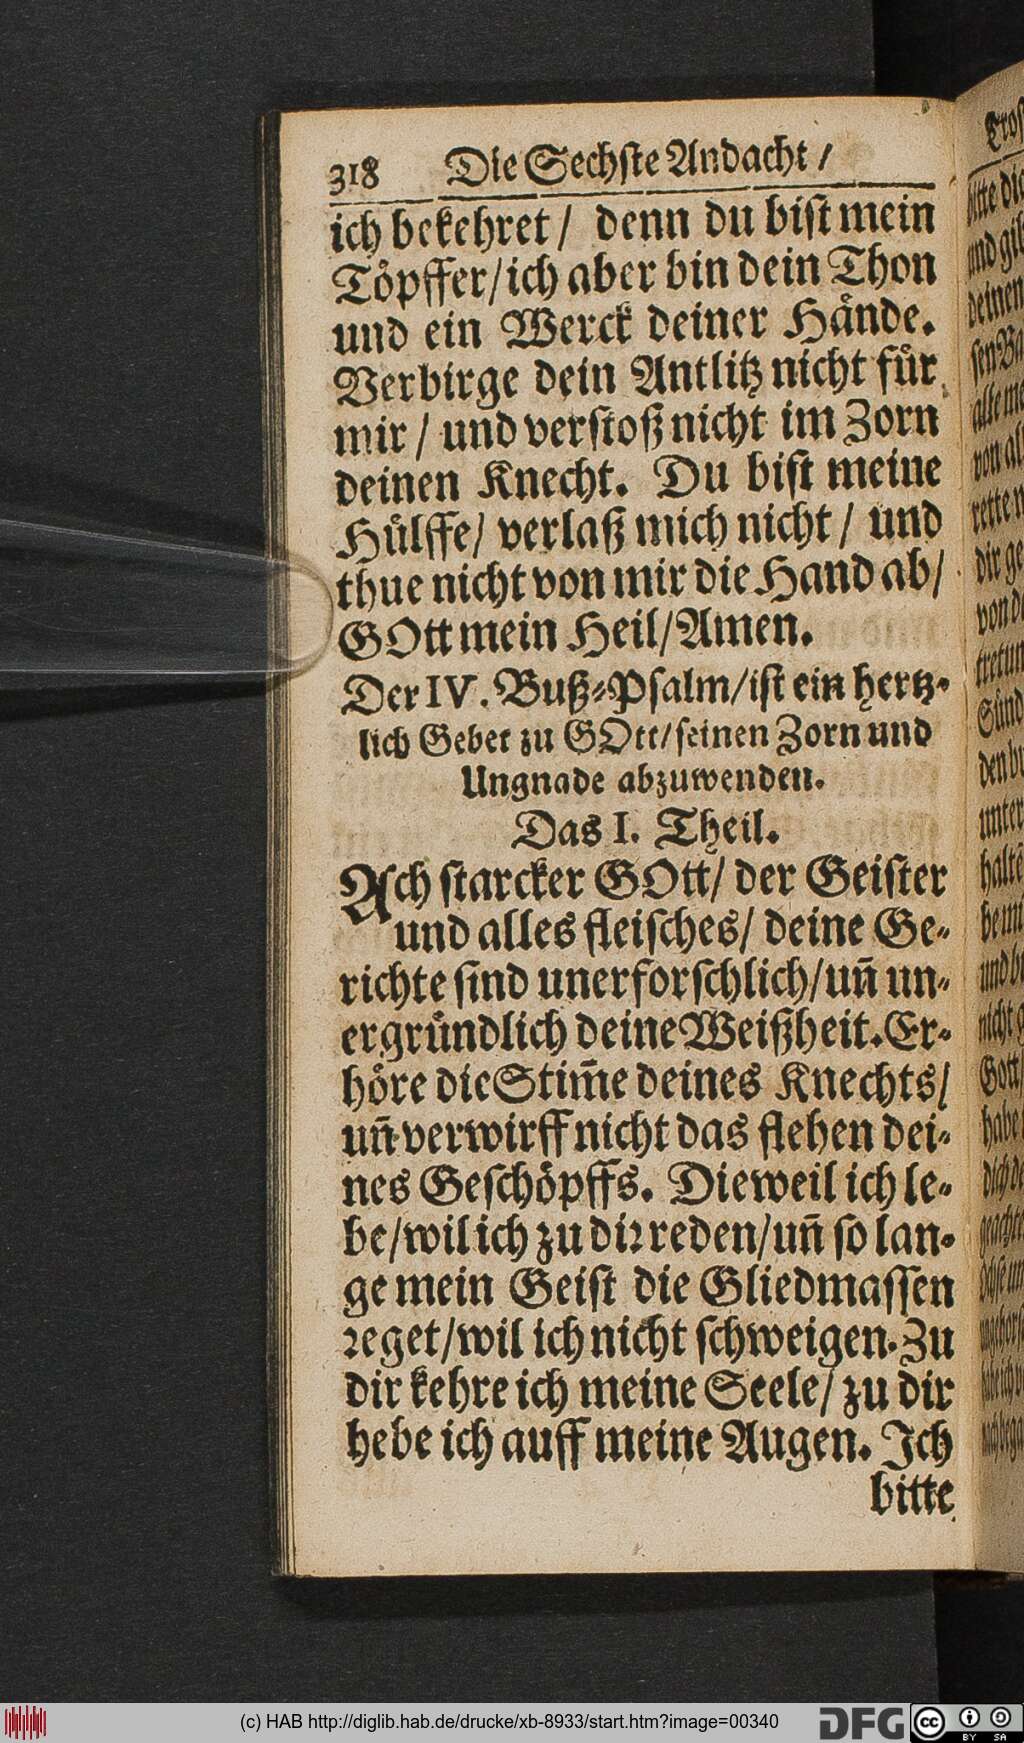 318 Die Sechste Andacht /
ich bekehret / denn du bist mein
Töpffer / ich aber bin dein Thon
und ein Werck deiner Hände.
Verbirge dein Antlitz nicht für
mir / und verstoß nicht im Zorn
deinen Knecht. Du bist meine
Hülffe / verlaß mich nicht / und
thue nicht von mir die Hand ab /
GOtt mein Heil / Amen.
Der IV. Buß-Psalm / ist ein hertz-
lich Gebet zu GOtt / seinen Zorn und
Ungnade abzuwenden.
Das I. Theil.
Ach starcker GOtt / der Geister
und alles fleisches / deine Ge-
richte sind unerforschlich / uñ un-
ergründlich deine Weißheit. Er-
höre die Stim̃e deines Knechts /
uñ verwirff nicht das flehen dei-
nes Geschöpffs. Dieweil ich le-
be / wil ich zu dir reden / uñ so lan-
ge mein Geist die Gliedmassen
reget / wil ich nicht schweigen. Zu
dir kehre ich meine Seele / zu dir
hebe ich auff meine Augen. Ich
bitte
bitte
und
deinen
von
dir ge
von
Sünd
unter
nicht
Gott /
habe
(c) HAB http://diglib.hab.de/drucke/xb-8933/start.htm?image=00340
DFG
cc BY SA